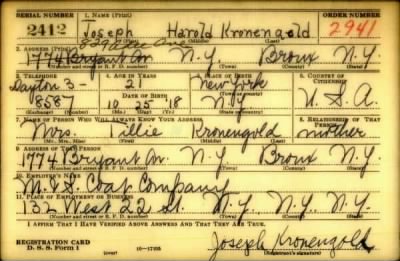 SERIAL NUMBER 1. NAME (Print) ORDER NUMBER
2412 Joseph Harold Kronengold 2941
(First) (Middle) (Last)
2. ADDRESS (Print)
1774 Bryant Av. N.Y. Bronx N.Y.
(Number and street or R. F. D. number) (Town) (County) (State)
3. TELEPHONE 4. AGE IN YEARS 5. PLACE OF BIRTH 6. COUNTRY OF CITIZENSHIP
Dayton 3- 21 New York
8587 10 25 18 N.Y. U.S.A.
7. NAME OF PERSON WHO WILL ALWAYS KNOW YOUR ADDRESS 8. RELATIONSHIP OF THAT PERSON
Mrs. Tillie Kronengold mother
(Mr., Mrs., Miss) (First) (Middle) (Last)
9. ADDRESS OF THAT PERSON
1774 Bryant Av. N.Y. Bronx N.Y.
(Number and street or R. F. D. number) (Town) (County) (State)
10. EMPLOYER'S NAME
M. & S. Coat Company
11. PLACE OF EMPLOYMENT OR BUSINESS
132 West 22 St. N.Y. N.Y. N.Y.
(Number and street or R. F. D. number) (Town) (County) (State)
I AFFIRM THAT I HAVE VERIFIED ABOVE ANSWERS AND THAT THEY ARE TRUE.
REGISTRATION CARD
D. S. S. Form 1 (over) 16-17105 Joseph Kronengold
(Registrant's signature)